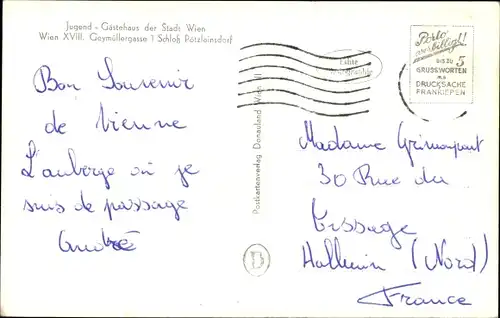 Jugend - Gästehaus der Stadt Wien
Wien XVIII. Geymüllergasse 1 Schloß Pötzleinsdorf
Bon Souvenir
de Vienne
L'auberge où je
suis de passage
André
Postkartenverlag Donauland Wien VII
D
Echte
Porto
verbilligt!
BIS ZU 5
GRUSSWORTEN
ALS
DRUCKSACHE
FRANKIEREN
Madame Grimonpont
30 Rue du
Tissage
Halluin (Nord)
France